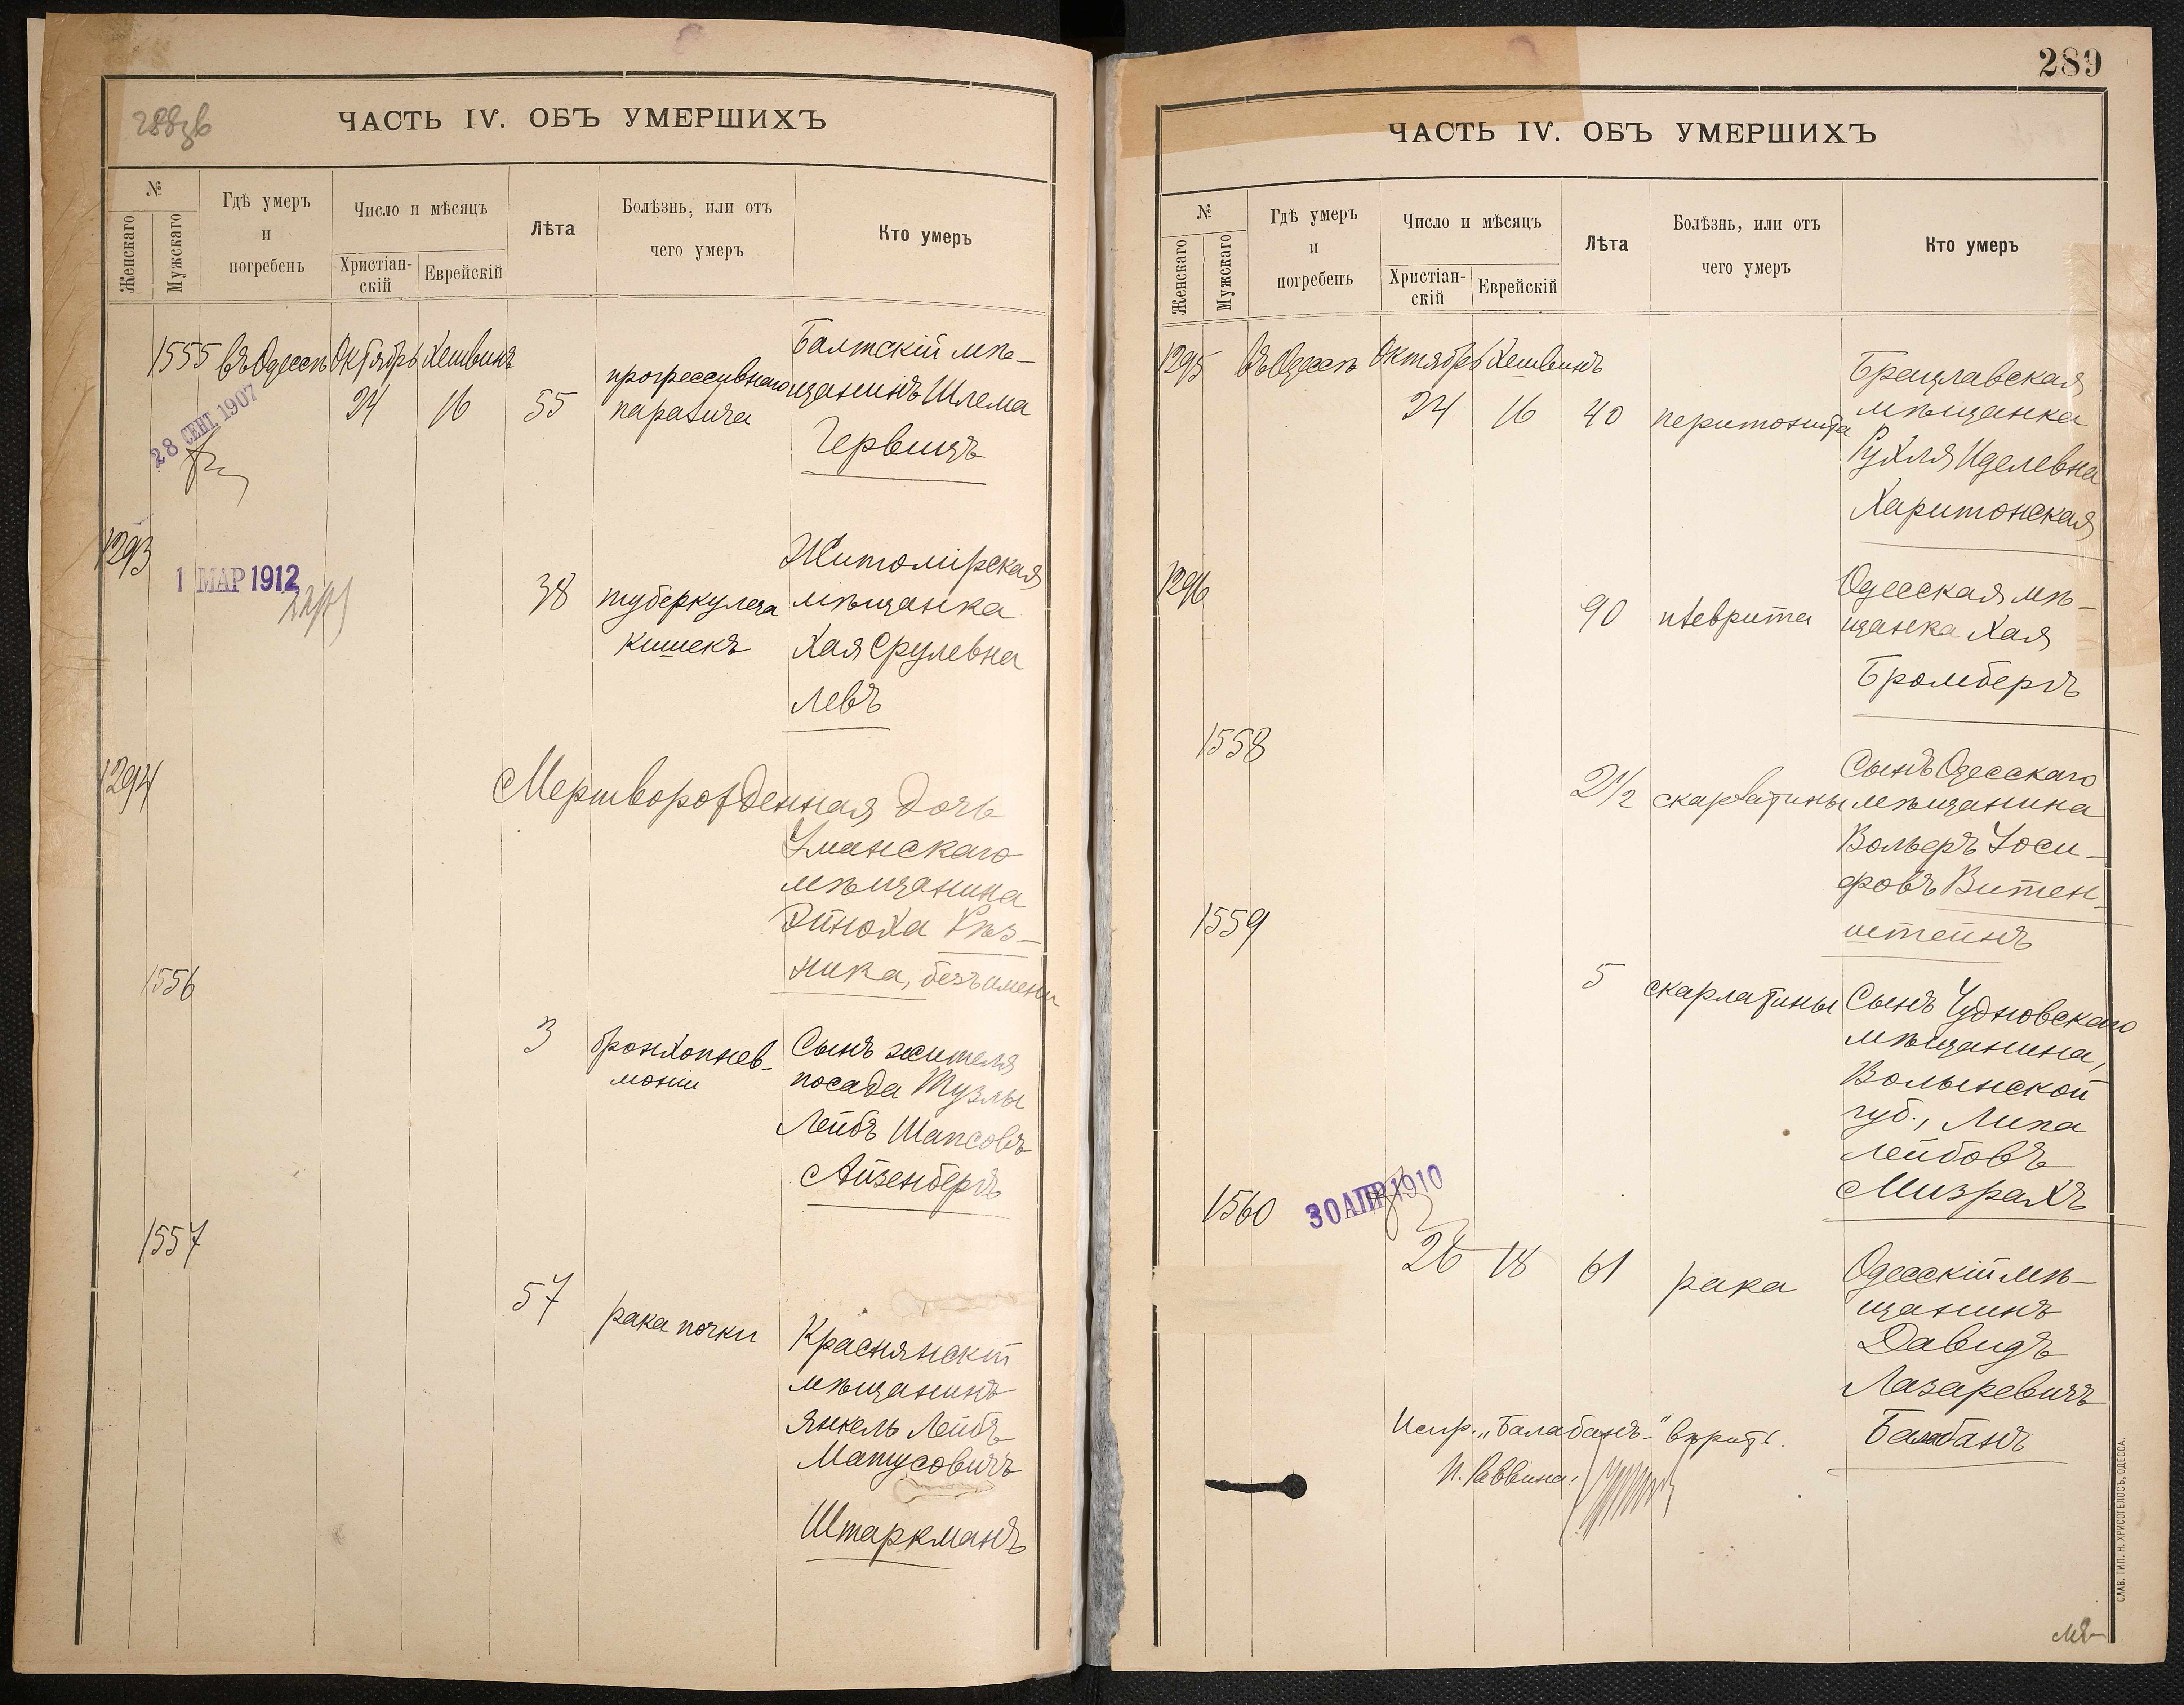 288зв
ЧАСТЬ IV. ОБЪ УМЕРШИХЪ
№
Женскаго
Мужскаго
Гдѣ умеръ
и
погребенъ
Число и мѣсяцъ
Христіан-
скій
Еврейскій
Лѣта
Болѣзнь, или отъ
чего умеръ
Кто умеръ
1555 въ Одессѣ Октябрь Хешвинъ
24 16 55 прогрессивнаго
паралича
Балтскій мѣ-
щанинъ Шлема
Гервицъ
28 СЕНТ. 1907
1293
1 МАР 1912
38 туберкулеза
кишекъ
Житомірская
мѣщанка
Хая Срулевна
Левъ
1294
Мертворожденная дочь
Уманскаго
мѣщанина
Эйноха Рѣз-
ника, безъ имени
1556
3 бронхопнев-
моніи
Сынъ жителя
посада Тузлы
Лейбъ Шапсовъ
Айзенбергъ
1557
57 рака почки
Краснянскій
мѣщанинъ
Янкель Лейбъ
Матусовичъ
Штаркманъ
289
ЧАСТЬ IV. ОБЪ УМЕРШИХЪ
№
Женскаго
Мужскаго
Гдѣ умеръ
и
погребенъ
Число и мѣсяцъ
Христіан-
скій
Еврейскій
Лѣта
Болѣзнь, или отъ
чего умеръ
Кто умеръ
1295 Въ Одессѣ Октябрь Хешвинъ
24 16 40 перитонита
Брацлавская
мѣщанка
Рухля Иделевна
Харитонская
1296
90 плеврита
Одесская мѣ-
щанка Хая
Бромбергъ
1558
2 1/2 скарлатины
Сынъ Одесскаго
мѣщанина
Вольфъ Іоси-
фовъ Витен-
штейнъ
1559
5 скарлатины
Сынъ Чудновскаго
мѣщанина,
Волынской
губ., Липа
Лейбовъ
Мизрахъ
1560
30 АПР 1910
26 18 61 рака
Одесскій мѣ-
щанинъ
Давидъ
Лазаревичъ
Балабанъ
Испр. „Балабанъ" вѣрить.
И. Раввина:
СЛАВ. ТИП. Н. ХРИСОГЕЛОСЪ, ОДЕССА.